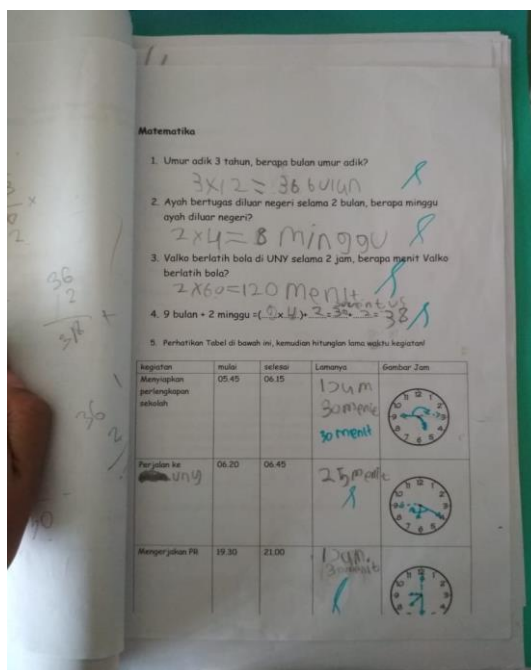 Matematika
1. Umur adik 3 tahun, berapa bulan umur adik?
3x12=36 bulan
2. Ayah bertugas diluar negeri selama 2 bulan, berapa minggu
ayah diluar negeri?
2x4=8 minggu
3. Valko berlatih bola di UNY selama 2 jam, berapa menit Valko
berlatih bola?
2x60=120 menit
4. 9 bulan + 2 minggu =(9x4)+2=36+2=38
5. Perhatikan Tabel di bawah ini, kemudian hitunglan lama waktu kegiatan!
kegiatan mulai selesai Lamanya Gambar Jam
Menyiapkan perlengkapan sekolah 05.45 06.15 30 menit
30 menit
Perjalan ke UNY 06.20 06.45 25 menit
Mengerjakan PR 19.30 21.00
36
2
36
2